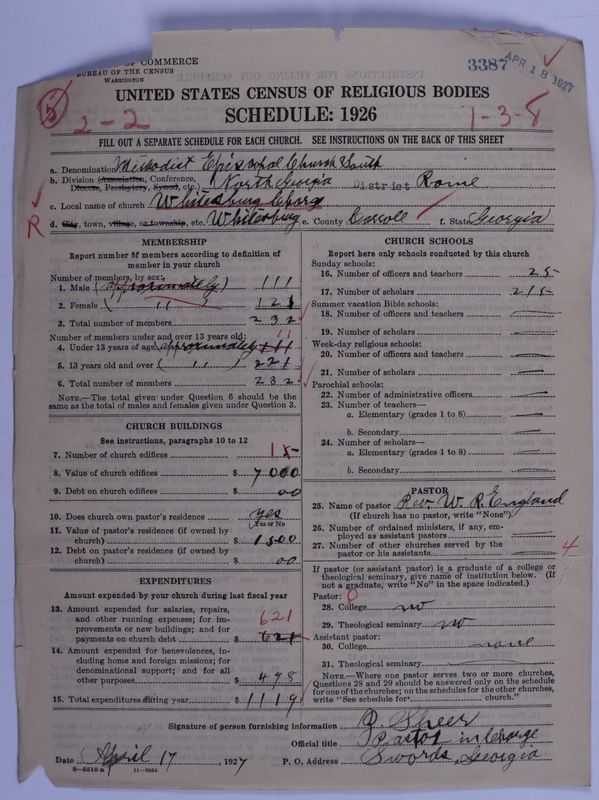 OF COMMERCE
BUREAU OF THE CENSUS
WASHINGTON
3387
APR 18 1927
UNITED STATES CENSUS OF RELIGIOUS BODIES
SCHEDULE: 1926
5
2-2
1-3-8
FILL OUT A SEPARATE SCHEDULE FOR EACH CHURCH. SEE INSTRUCTIONS ON THE BACK OF THIS SHEET
a. Denomination Methodist Episcopal Church South
b. Division (Association, Conference, Diocese, Presbytery, Synod, etc.) North Georgia District Rome
c. Local name of church Whitesburg Charge
R
d. City, town, village, or township, etc. Whitesburg e. County Carroll f. State Georgia
MEMBERSHIP
Report number of members according to definition of
member in your church
Number of members by sex:
1. Male (approximately) 111
2. Female ( " ) 121
3. Total number of members 232
Number of members under and over 13 years old:
4. Under 13 years of age approximately 11
5. 13 years old and over ( " ) 221
6. Total number of members 232
NOTE.—The total given under Question 6 should be the
same as the total of males and females given under Question 3.
CHURCH BUILDINGS
See instructions, paragraphs 10 to 12
7. Number of church edifices 1
8. Value of church edifices $ 7000
9. Debt on church edifices $ 00
10. Does church own pastor's residence yes
Yes or No
11. Value of pastor's residence (if owned by
church) $ 1500
12. Debt on pastor's residence (if owned by
church) $ 00
EXPENDITURES
Amount expended by your church during last fiscal year
13. Amount expended for salaries, repairs,
and other running expenses; for im-
provements or new buildings; and for
payments on church debt $ 621
621
14. Amount expended for benevolences,
including home and foreign missions; for
denominational support; and for all
other purposes $ 498
15. Total expenditures during year $ 1119
CHURCH SCHOOLS
Report here only schools conducted by this church
Sunday schools:
16. Number of officers and teachers 25
17. Number of scholars 215
Summer vacation Bible schools:
18. Number of officers and teachers
19. Number of scholars
Week-day religious schools:
20. Number of officers and teachers
21. Number of scholars
Parochial schools:
22. Number of administrative officers
23. Number of teachers—
a. Elementary (grades 1 to 8)
b. Secondary
24. Number of scholars—
a. Elementary (grades 1 to 8)
b. Secondary
PASTOR
25. Name of pastor Rev. W. R. England
(If church has no pastor, write "None")
26. Number of ordained ministers, if any, em-
ployed as assistant pastors
27. Number of other churches served by the
pastor or his assistants 4
If pastor (or assistant pastor) is a graduate of a college or
theological seminary, give name of institution below. (If
not a graduate, write "No" in the space indicated.)
Pastor: 0
28. College no
29. Theological seminary no
Assistant pastor:
30. College none
31. Theological seminary
NOTE.—Where one pastor serves two or more churches,
Questions 28 and 29 should be answered only on the schedule
for one of the churches; on the schedules for the other churches,
write "See schedule for church."
Signature of person furnishing information
Official title Pastor in Charge
Date April 17, 1927 P. O. Address Swords, Georgia
8—5518a 11—9084